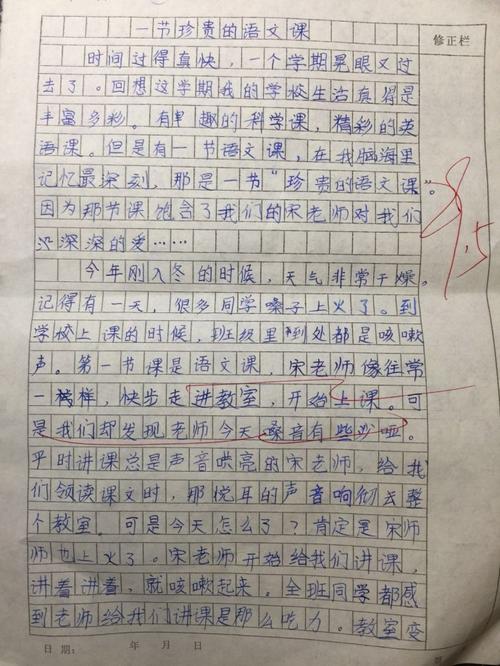 一节珍贵的语文课
修正栏
时间过得真快，一个学期晃眼又过
去了。回想这学期我的学校生活真得是
丰富多彩。有早趣的科学课，精彩的英
语课。但是有一节语文课，在我脑海里
记忆最深刻，那是一节“珍贵的语文课”。
因为那节课饱含了我们的宋老师对我们
深深的爱……
89.5
今年刚入冬的时候，天气非常干燥。
记得有一天，很多同学嗓子上火了。到
学校上课的时候，班级里到处都是咳嗽
声。第一节课是语文课，宋老师像往常
一样，快步走进教室，开始上课。可
是我们却发现老师今天嗓音有些沙哑。
平时讲课总是声音哄亮的宋老师，给我
们领读课文时，那悦耳的声音响彻去整
个教室。可是今天怎么了？肯定是宋师
师也上火了。宋老师开始给我们讲课，
讲着讲着，就咳嗽起来。全班同学都感
到老师给我们讲课是那么吃力。教室变
日期： 年 月 日